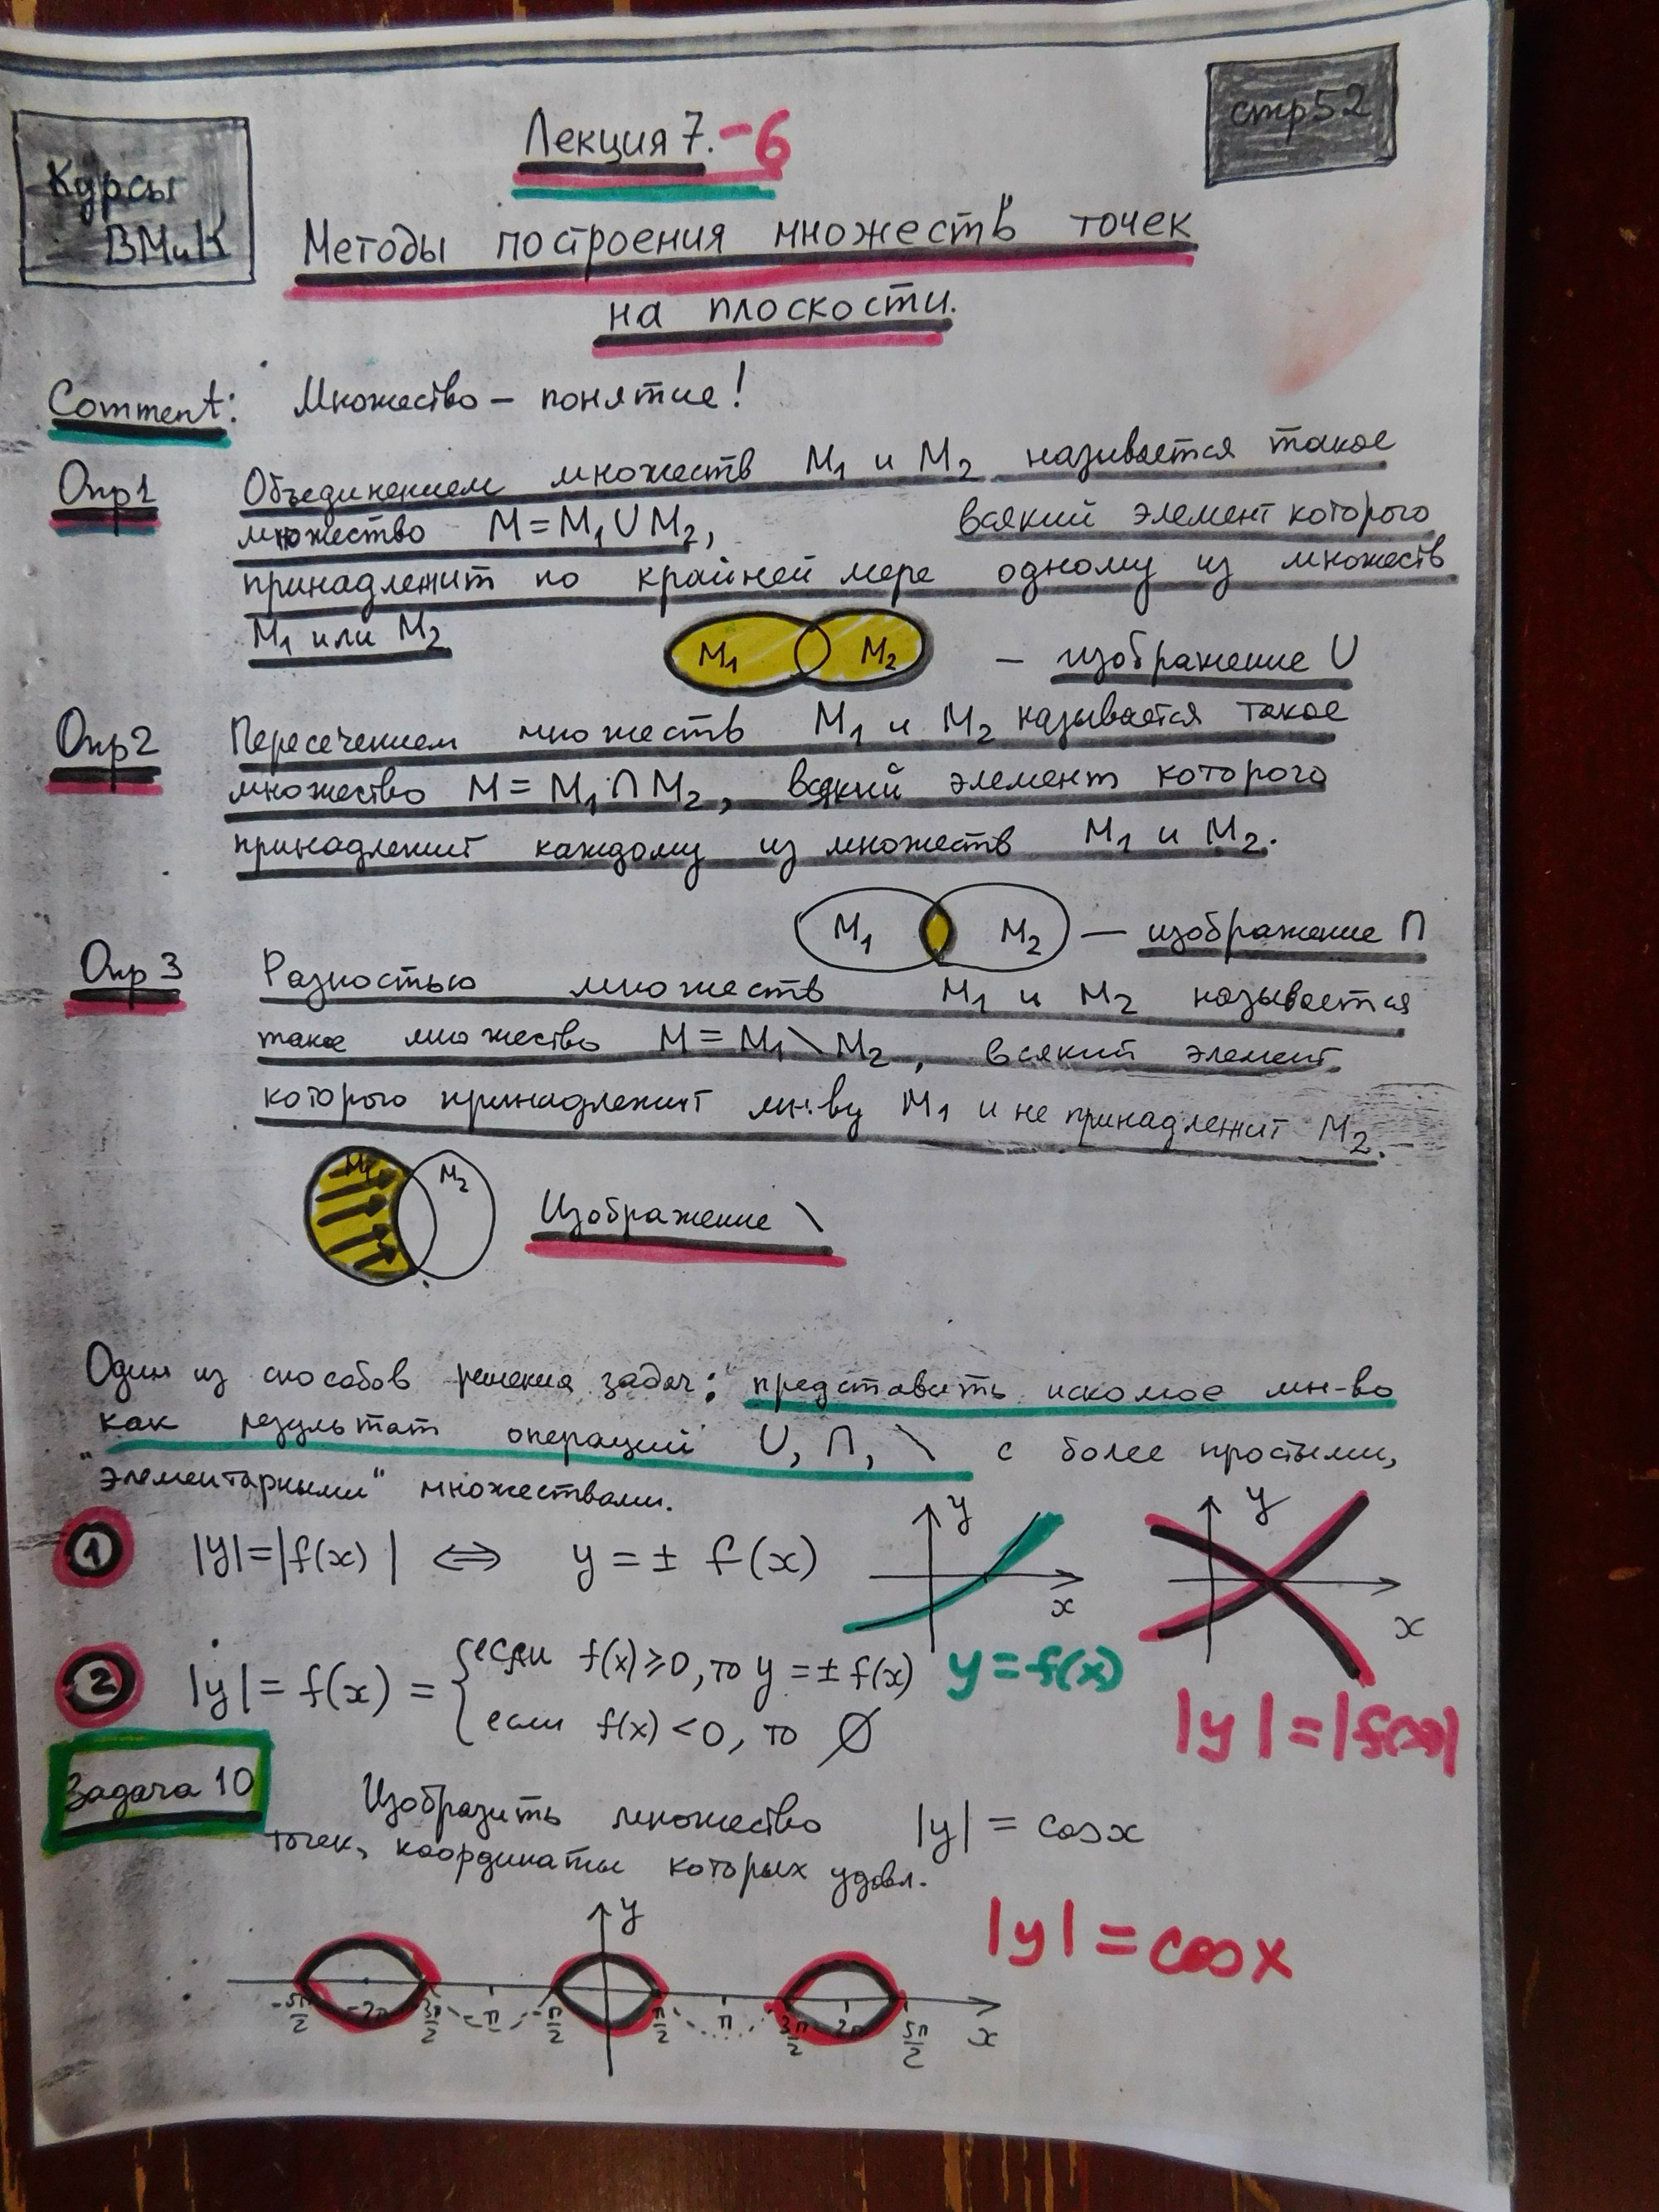 стр 52
Курсы
ВМиК
Лекция 7.-6
Методы построения множеств точек
на плоскости.
Comment: Множество – понятие!
Опр1 Объединением множеств M₁ и M₂ называется такое
множество M = M₁ ∪ M₂, всякий элемент которого
принадлежит по крайней мере одному из множеств
M₁ или M₂
M₁ M₂ – изображение ∪
Опр2 Пересечением множеств M₁ и M₂ называется такое
множество M = M₁ ∩ M₂, всякий элемент которого
принадлежит каждому из множеств M₁ и M₂.
M₁ M₂ — изображение ∩
Опр 3 Разностью множеств M₁ и M₂ называется
такое множество M = M₁ \ M₂, всякий элемент
которого принадлежит мн-ву M₁ и не принадлежит M₂.
M₁ M₂ Изображение \
Один из способов решения задач: представить искомое мн-во
как результат операций ∪, ∩, \ с более простыми,
"элементарными" множествами.
1 |y|=|f(x)| ⟺ y = ± f(x)
y x
y x
2 |y| = f(x) = { если f(x) ≥ 0, то y = ± f(x)
если f(x) < 0, то ∅
y = f(x)
|y| = |f(x)|
Задача 10 Изобразить множество |y| = cos x
точек, координаты которых удовл.
|y| = cos x
y
-5π/2 -2π -3π/2 -π -π/2 π/2 π 3π/2 2π 5π/2 x